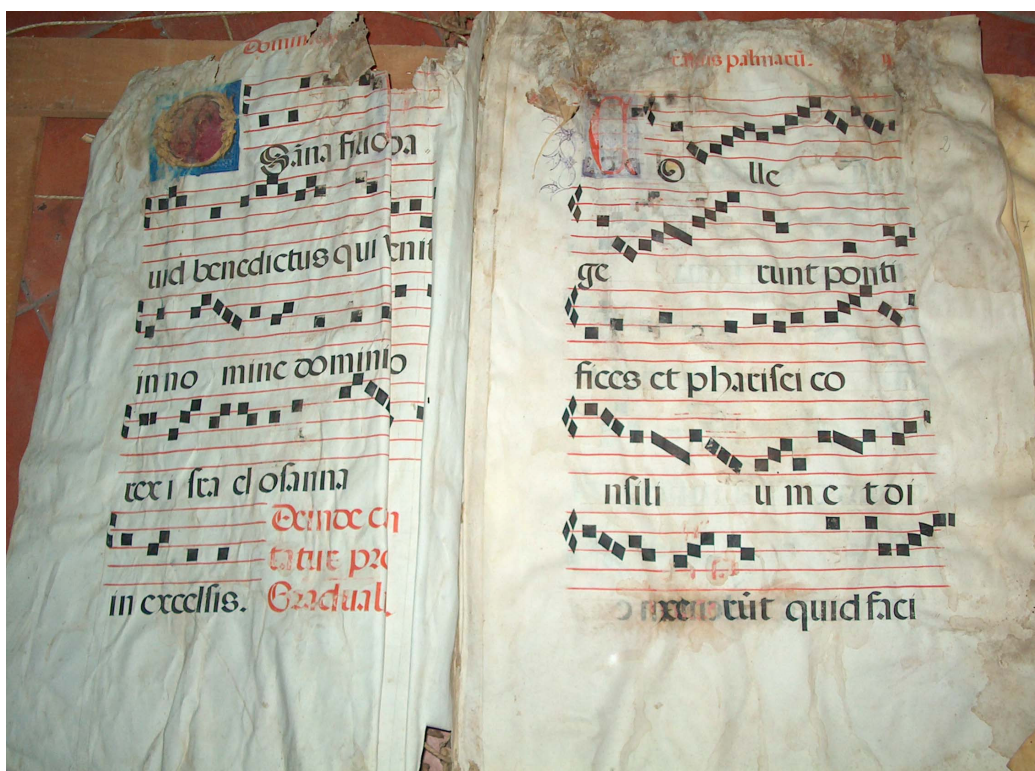 Domini
Sana filio da
uid benedictus qui venit
in no mine domini o
rex i sra el osanna
in excelsis.
Deinde can
tatur pro
Graduali
ramis palmarū.
O lle
ge runt ponti
fices et pharisei co
nsili u m e t di
xerūt quid faci